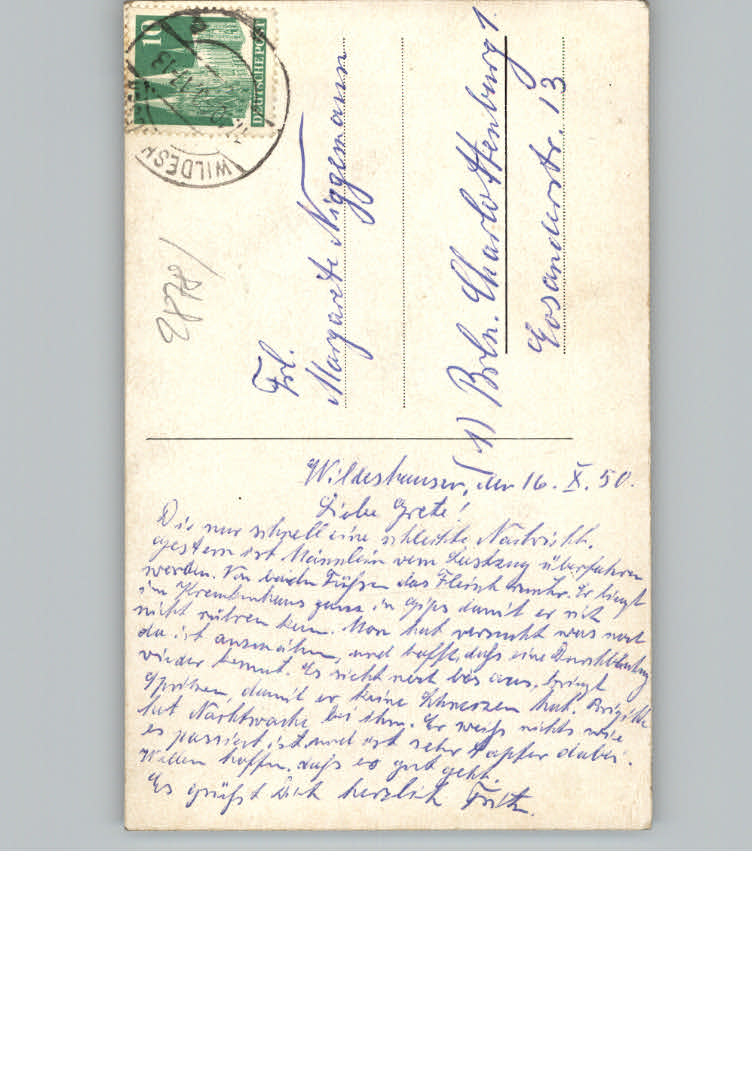 10
DEUTSCHE POST
WILDESH
2878/
Frl.
Margarete Niggemann
(1) Brln. Charlottenburg 1.
Eosanderstr. 13
Wildeshausen, den 16. X. 50.
Liebe Grete!
Dir nur schnell eine schlechte Nachricht.
gestern ist Männlein vom Lastzug überfahren
worden. Von beiden Füßen das Fleisch runter. Er liegt
im Krankenhaus ganz in Gips damit er sich
nicht rühren kann. Man hat versucht was noch
da ist anzunähen, und hofft, daß eine Durchblutung
wieder kommt. Es sieht noch bös aus, kriegt
Spritzen, damit er keine Schmerzen hat. Brigitte
hat Nachtwache bei ihm. Er weiß nichts wie
es passiert ist und ist sehr tapfer dabei.
Wollen hoffen, daß es gut geht.
Es grüßt Dich herzlich Fritz.